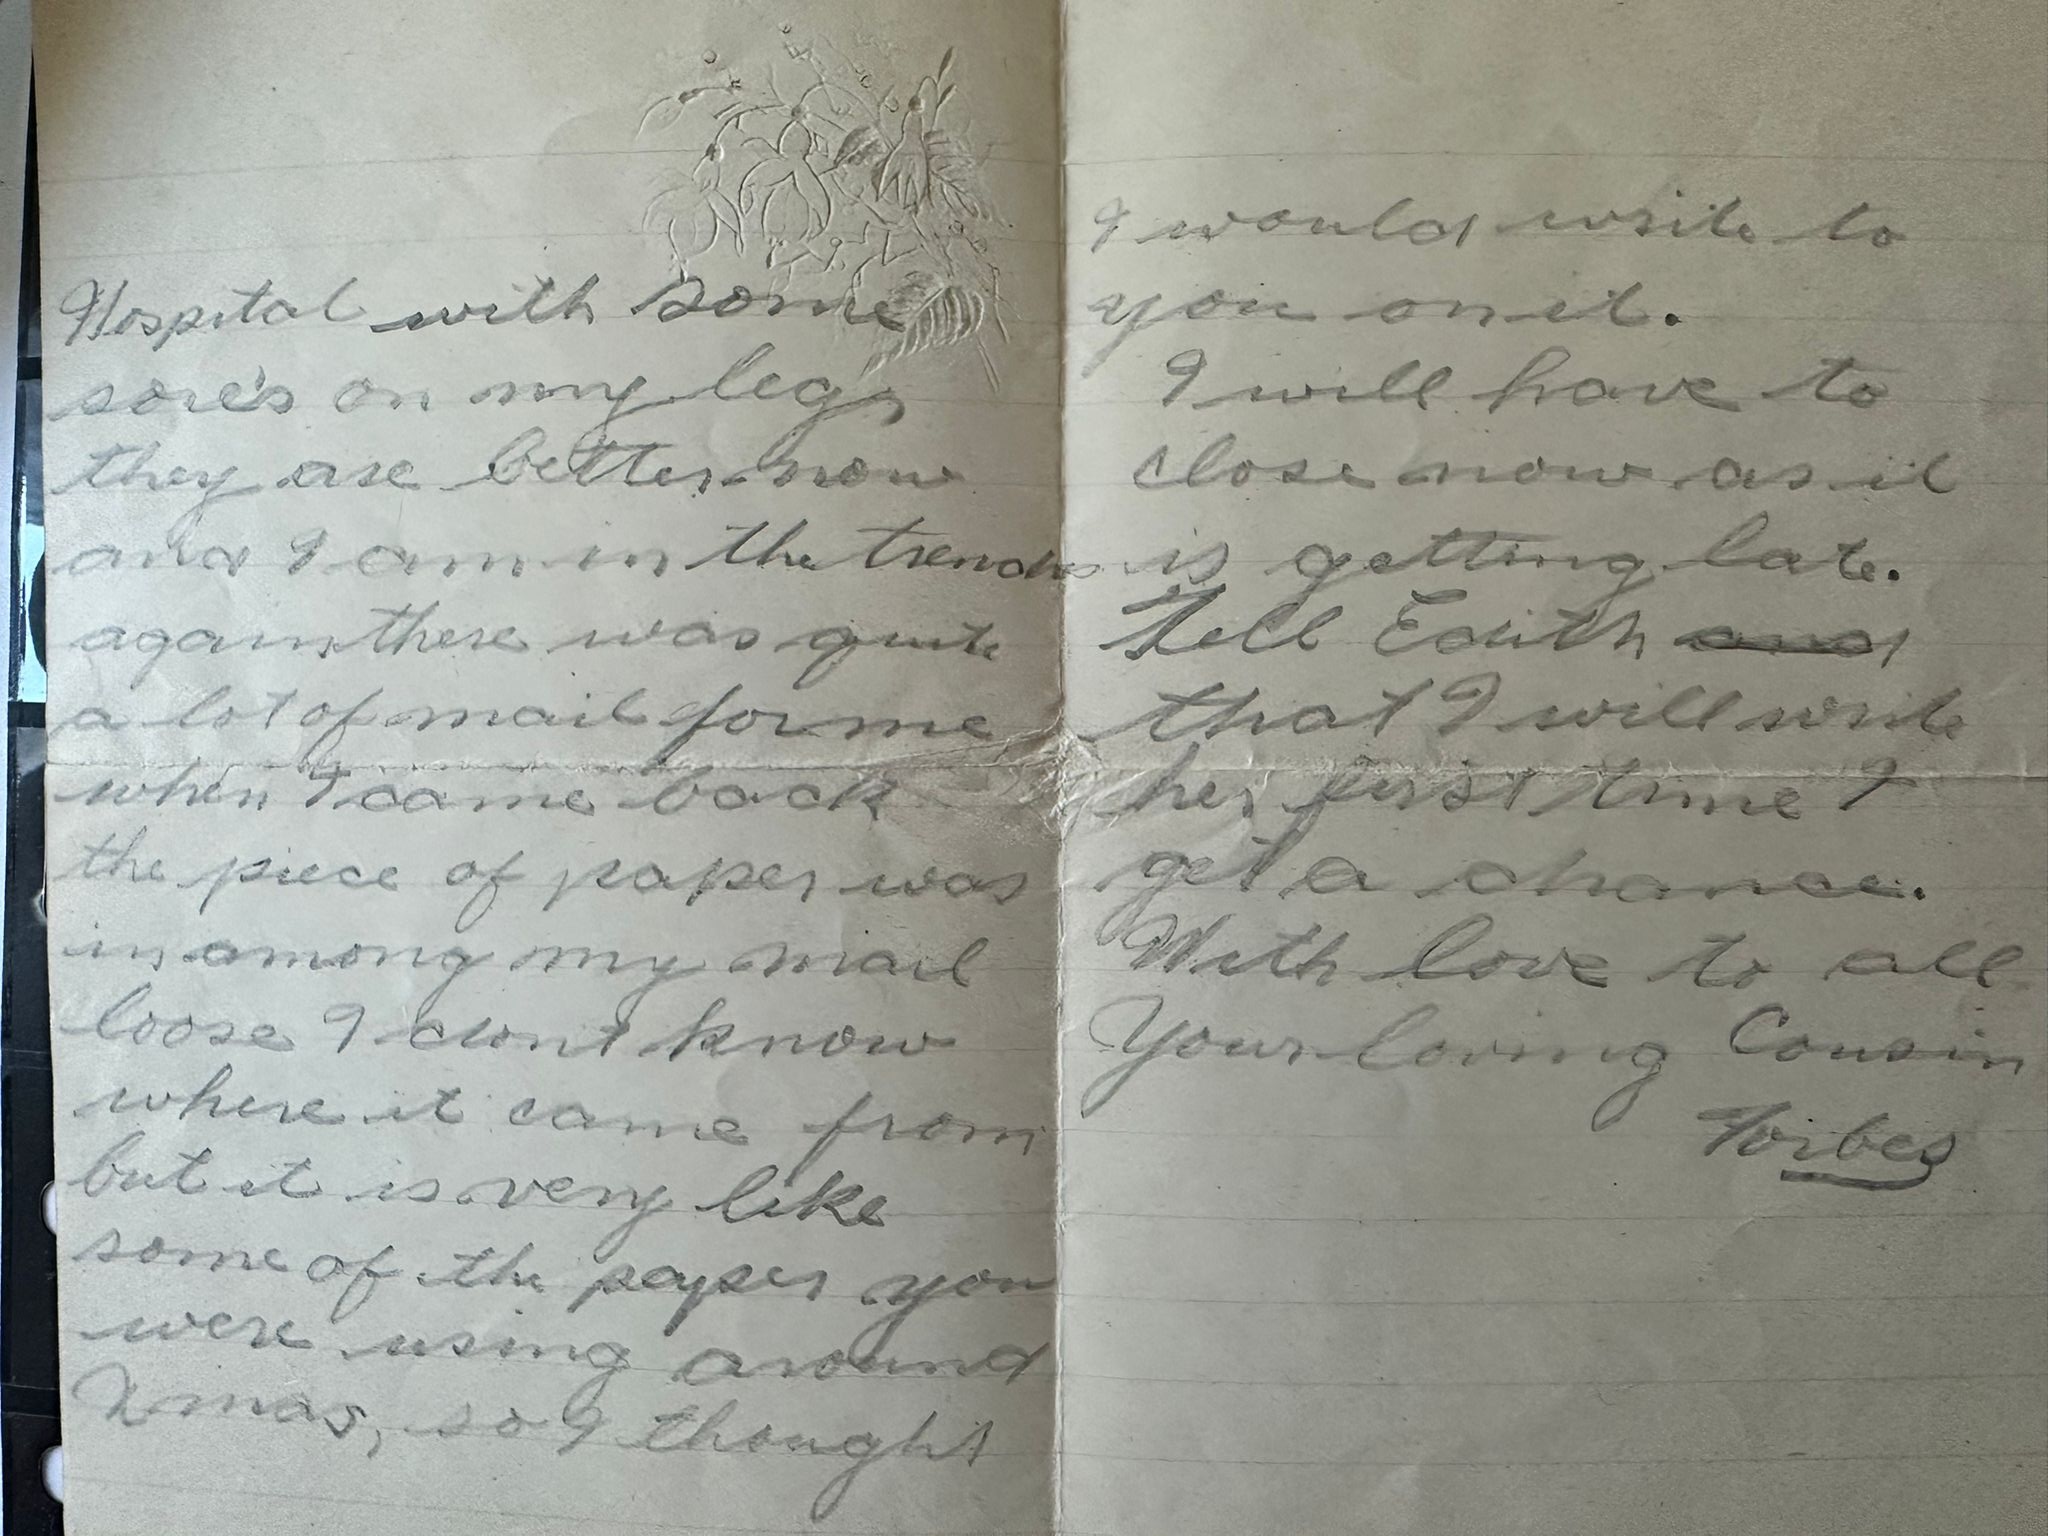 Hospital with some
sore's on my legs
they are better now
and I am in the trenches
again there was quite
a lot of mail for me
when I came back
the piece of paper was
in among my mail
loose I dont know
where it came from
but it is very like
some of the paper you
were using around
Xmas, so I thought
I would write to
you on it.
I will have to
close now as it
is getting late.
Tell Edith and
that I will write
her first time I
get a chance.
With love to all
Your loving Cousin
Forbes